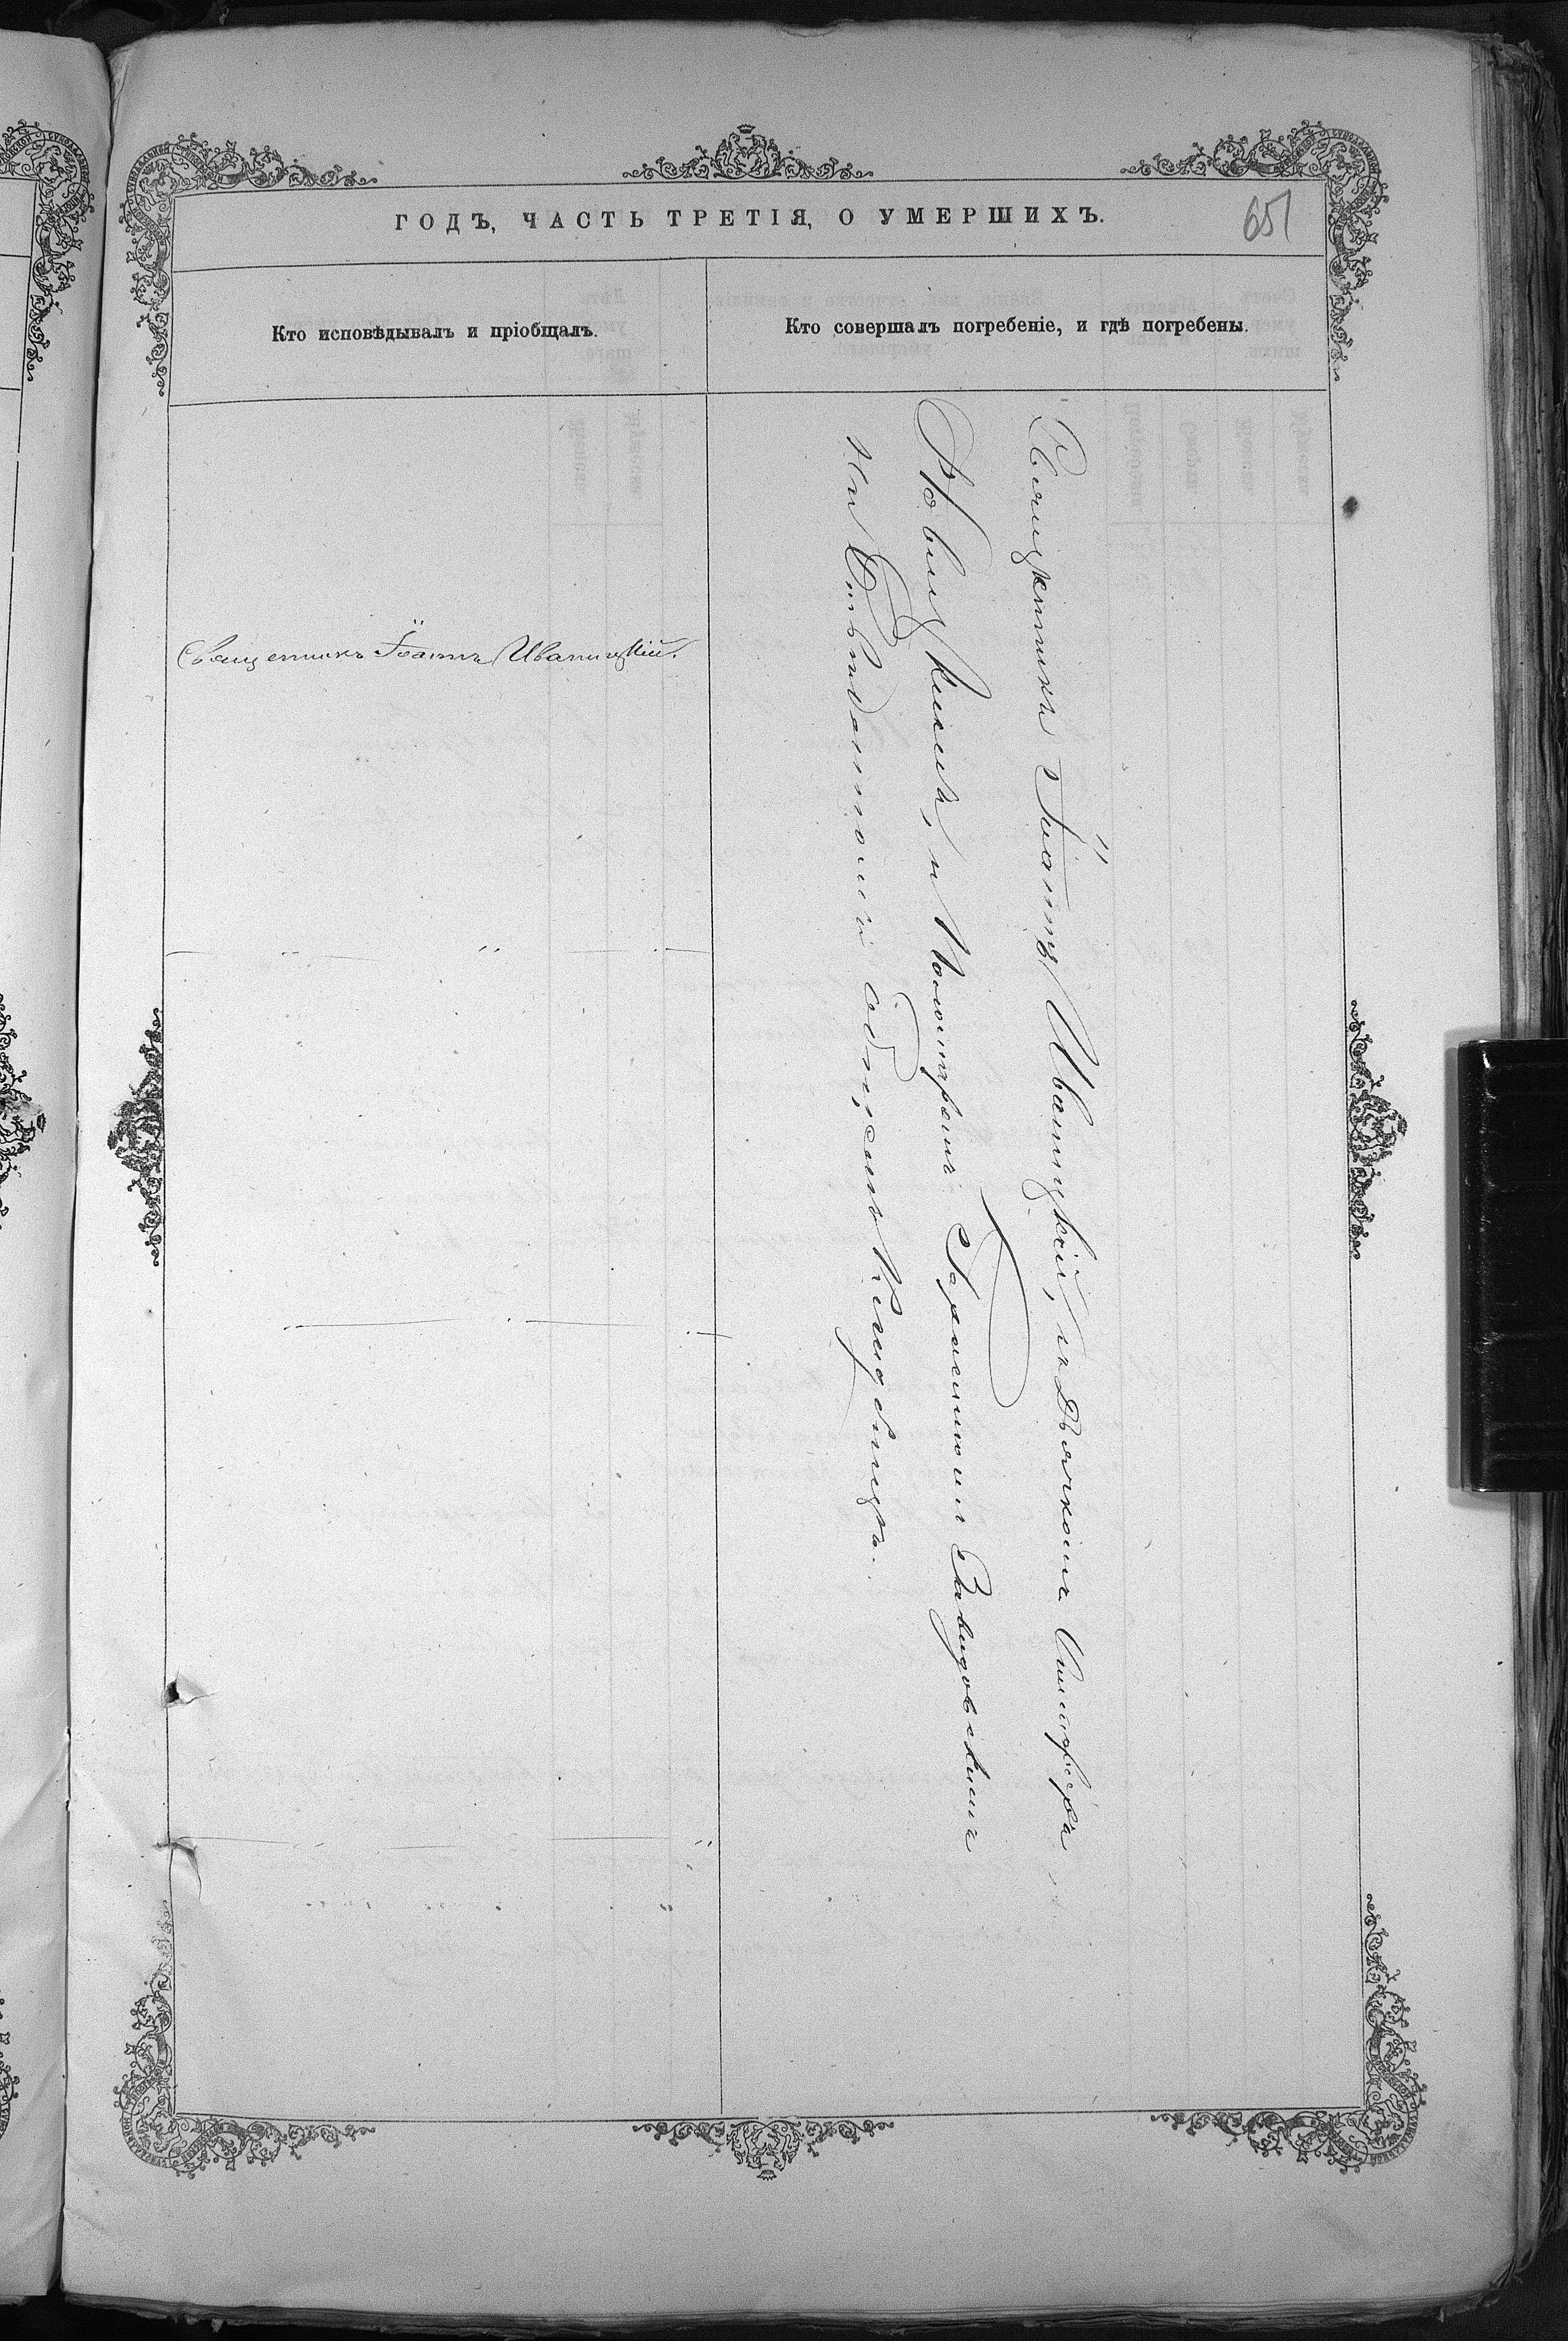 ГОДЪ, ЧАСТЬ ТРЕТІЯ, О УМЕРШИХЪ.
651
Кто исповѣдывалъ и пріобщалъ.
Кто совершалъ погребеніе, и гдѣ погребены.
Священникъ Іоаннъ Иваницкій.
Священникъ Іоаннъ Иваницкій, съ Дьячкомъ
и Пономаремъ Герасимомъ
на отведенномъ общемъ Кладбищѣ.